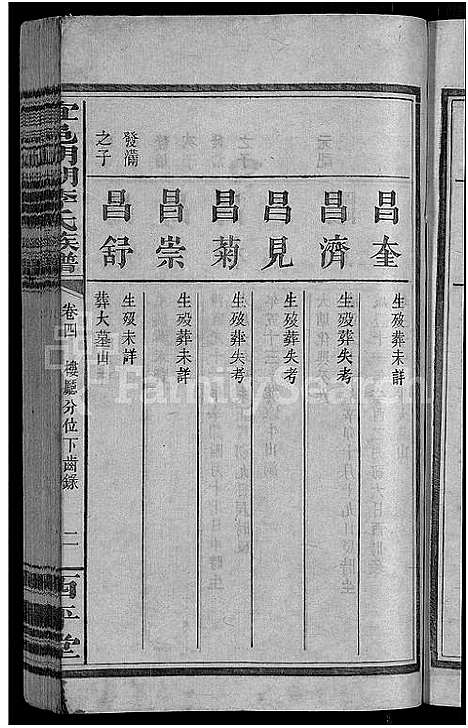 昌奎 生歿葬未詳
昌濟 生歿葬失考
昌見 生歿葬失考
昌菊 生歿葬失考
昌崇 生歿葬未詳
發滿之子
昌舒 生歿未詳
葬大墓山
李氏族譜
卷四
樓廳分位下齒錄
二
西平堂
FamilySearch